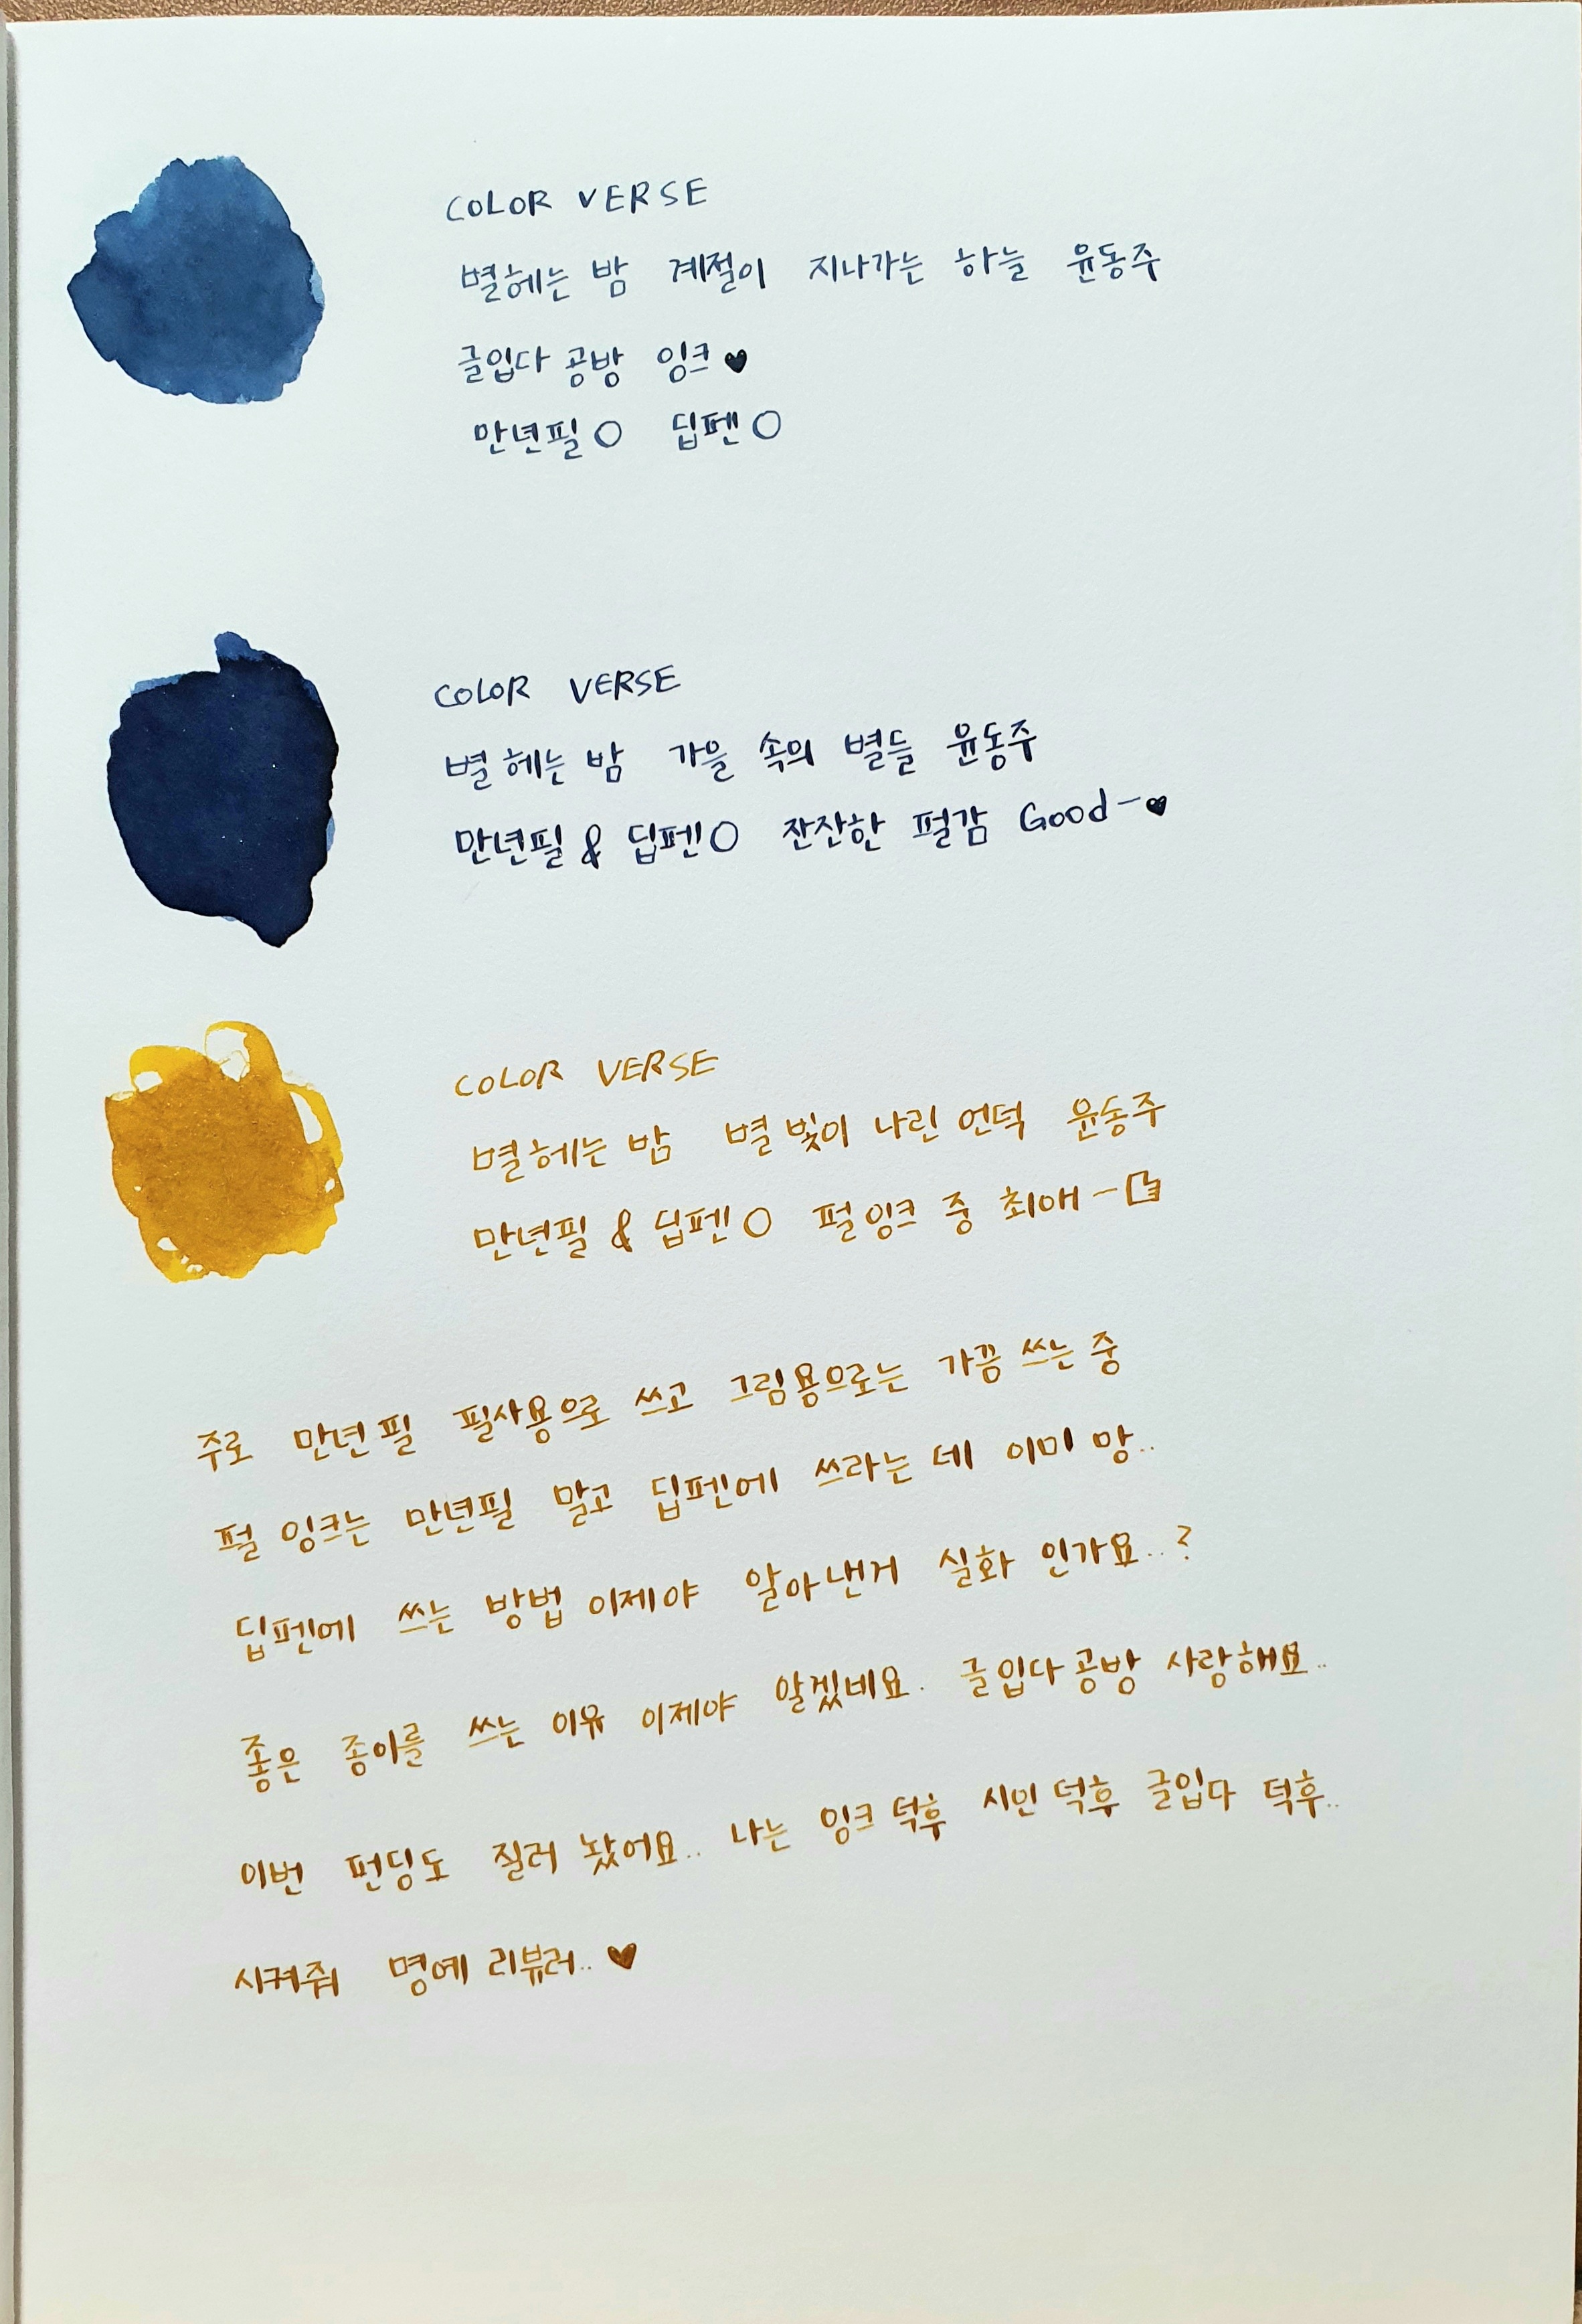 COLOR VERSE
별헤는 밤 계절이 지나가는 하늘 윤동주
글입다 공방 잉크♥
만년필○ 딥펜○
COLOR VERSE
별 헤는 밤 가을 속의 별들 윤동주
만년필 & 딥펜○ 잔잔한 펄감 Good-♥
COLOR VERSE
별헤는 밤 별빛이 나린 언덕 윤동주
만년필 & 딥펜○ 펄잉크 중 최애-👍
주로 만년필 필사용으로 쓰고 그림용으로는 가끔 쓰는 중
펄 잉크는 만년필 말고 딥펜에 쓰라는데 이미 망..
딥펜에 쓰는 방법 이제야 알아낸거 실화 인가요..?
좋은 종이를 쓰는 이유 이제야 알겠네요. 글입다공방 사랑해요..
이번 펀딩도 질러 놨어요.. 나는 잉크 덕후 시인 덕후 글입다 덕후..
시켜줘 명예 리뷰러..♥